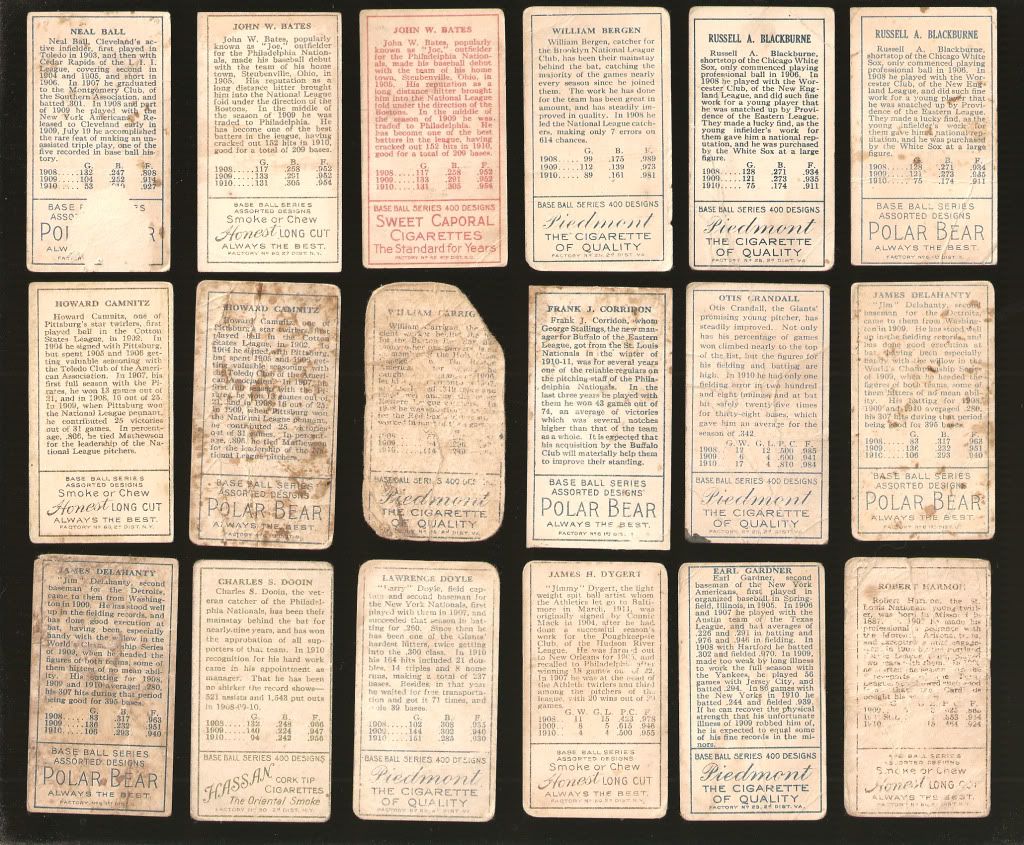 NEAL BALL
Neal Ball, Cleveland's
active infielder, first played in
Toledo in 1903, and then with
Cedar Rapids of the I. I. I.
League, covering second in
1904 and 1905, and short in
1906. In 1907 he graduated
to the Montgomery Club of the
Southern Association, and
batted .301. In 1908 and part
of 1909 he played with the
New York Americans. Re-
leased to Cleveland early in
1909, July 19 he accomplished
the rare feat of making an un-
assisted triple play, one of the
five recorded in base ball his-
tory.
G. B. F.
1908 132 .247 .898
1909 104 .252 .914
1910 53 .927
BASE SERIES
ASSO
PO R
ALW
JOHN W. BATES
John W. Bates, popularly
known as "Joe," outfielder
for the Philadelphia Nation-
als, made his baseball debut
with the team of his home
town, Steubenville, Ohio, in
1905. His reputation as a
long distance hitter brought
him into the National League
fold under the direction of the
Bostons. In the middle of
the season of 1909 he was
traded to Philadelphia. He
has become one of the best
batters in the league, having
cracked out 152 hits in 1910,
good for a total of 209 bases.
G. B. F.
1908 117 .258 .952
1909 133 .291 .952
1910 131 .305 .954
BASE BALL SERIES
ASSORTED DESIGNS
Smoke or Chew
Honest LONG CUT
ALWAYS THE BEST.
FACTORY NO 30, 2D DIST. N.Y.
JOHN W. BATES
John W. Bates, popularly
known as "Joe," outfielder
for the Philadelphia Nation-
als, made his baseball debut
with the team of his home
town, Steubenville, Ohio, in
1905. His reputation as a
long distance hitter brought
him into the National League
fold under the direction of the
Bostons. In the middle of
the season of 1909 he was
traded to Philadelphia. He
has become one of the best
batters in the league, having
cracked out 152 hits in 1910,
good for a total of 209 bases.
G. B. F.
1908 117 .258 .952
1909 133 .291 .952
1910 131 .305 .954
BASE BALL SERIES 400 DESIGNS
SWEET CAPORAL
CIGARETTES
The Standard for Years
WILLIAM BERGEN
William Bergen, catcher for
the Brooklyn National League
Club, has been their mainstay
behind the bat, catching the
majority of the games nearly
every season since he joined
them. The work he has done
for the team has been great in
amount, and has steadily im-
proved in quality. In 1908 he
led the National League catch-
ers, making only 7 errors on
614 chances.
G. B. F.
1908 99 .175 .989
1909 112 .139 .973
1910 89 .161 .981
BASE BALL SERIES 400 DESIGNS
Piedmont
THE CIGARETTE
OF QUALITY
FACTORY NO 25, 2D DIST. VA.
RUSSELL A. BLACKBURNE
Russell A. Blackburne,
shortstop of the Chicago White
Sox, only commenced playing
professional ball in 1906. In
1908 he played with the Wor-
cester Club, of the New Eng-
land League, and did such fine
work for a young player that
he was snatched up by Provi-
dence of the Eastern League.
They made a lucky find, as the
young infielder's work for
them gave him a national rep-
utation, and he was purchased
by the White Sox at a large
figure.
G. B. F.
1908 128 .271 .934
1909 121 .273 .935
1910 75 .174 .911
BASE BALL SERIES 400 DESIGNS
Piedmont
THE CIGARETTE
OF QUALITY
FACTORY NO 25, 2D DIST. VA.
RUSSELL A. BLACKBURNE
Russell A. Blackburne,
shortstop of the Chicago White
Sox, only commenced playing
professional ball in 1906. In
1908 he played with the Wor-
cester Club, of the New Eng-
land League, and did such fine
work for a young player that
he was snatched up by Provi-
dence of the Eastern League.
They made a lucky find, as the
young infielder's work for
them gave him a national rep-
utation, and he was purchased
by the White Sox at a large
figure.
G. B. F.
1908 128 .271 .934
1909 121 .273 .935
1910 75 .174 .911
BASE BALL SERIES
ASSORTED DESIGNS
POLAR BEAR
ALWAYS THE BEST.
HOWARD CAMNITZ
Howard Camnitz, one of
Pittsburg's star twirlers, first
played ball in the Cotton
States League, in 1902. In
1904 he signed with Pittsburg,
but spent 1905 and 1906 get-
ting valuable seasoning with
the Toledo Club of the Ameri-
can Association. In 1907, his
first full season with the Pi-
rates, he won 13 games out of
21, and in 1908, 16 out of 25.
In 1909, when Pittsburg won
the National League pennant,
he contributed 25 victories
out of 31 games. In percent-
age, .806, he tied Mathewson
for the leadership of the Na-
tional League pitchers.
BASE BALL SERIES
ASSORTED DESIGNS
Smoke or Chew
Honest LONG CUT
ALWAYS THE BEST.
HOWARD CAMNITZ
Howard Camnitz, one of
Pittsburg's star twirlers, first
played ball in the Cotton
States League, in 1902. In
1904 he signed with Pittsburg,
but spent 1905 and 1906 get-
ting valuable seasoning with
the Toledo Club of the Ameri-
can Association. In 1907,
BASE BALL SERIES
ASSORTED DESIGNS
POLAR BEAR
ALWAYS THE BEST.
WILLIAM CARRIG
William Carrigan
BASE BALL SERIES 400
Piedmont
THE CIGARETTE
OF QUALITY
FRANK J. CORRIDON
Frank J. Corridon, whom
George Stallings, the new man-
ager for Buffalo of the Eastern
League, got from the St. Louis
Nationals in the winter of
1910-11, was for several years
one of the reliable regulars on
the pitching staff of the Phila-
delphia Nationals. In the
last three years he played with
them he won 43 games out of
74, an average of victories
which was several notches
higher than that of the team
as a whole. It is expected that
his acquisition by the Buffalo
Club will materially help them
to improve their standing.
BASE BALL SERIES
ASSORTED DESIGNS
POLAR BEAR
ALWAYS THE BEST.
OTIS CRANDALL
Otis Crandall, the Giants'
promising young pitcher, has
steadily improved. Not only
has his percentage of games
won climbed nearly to the
top of the list, but the figures
for his fielding and batting
are high. In 1910 he had only
one fielding error in two hundred
and eight innings and at bat
but safely twenty five times
for thirty-eight bases, which
gave him an average for the
season of .342.
G. W. G. L. P. C. F.
1908 12 12 .500 .985
1909 6 4 .600 .941
1910 17 4 .810 .984
BASE BALL SERIES 400 DESIGNS
Piedmont
THE CIGARETTE
OF QUALITY
JAMES DELAHANTY
"Jim" Delahanty, second
baseman for the Detroits,
came to them from Washing-
ton in 1909. He has stood well
up in the fielding records, and
has done good execution at
bat, having been especially
handy with the willow in the
World's Championship Series
of 1909, when he headed the
figures of both teams, some of
them hitters of no mean abil-
ity. His batting for 1908,
1909 and 1910 averaged .280,
his 307 hits during that period
being good for 395 bases.
G. B. F.
1908 83 .317 .963
1909 136 .232 .951
1910 106 .293 .940
BASE BALL SERIES
ASSORTED DESIGNS
POLAR BEAR
ALWAYS THE BEST.
JAMES DELAHANTY
"Jim" Delahanty, second
baseman for the Detroits,
came to them from Washing-
ton in 1909. He has stood well
up in the fielding records, and
has done good execution at
bat, having been especially
handy with the willow in the
World's Championship Series
of 1909, when he headed the
figures of both teams, some of
them hitters of no mean abil-
ity. His batting for 1908,
1909 and 1910 averaged .280,
his 307 hits during that period
being good for 395 bases.
G. B. F.
1908 83 .317 .963
1909 136 .232 .951
1910 106 .293 .940
BASE BALL SERIES
ASSORTED DESIGNS
POLAR BEAR
ALWAYS THE BEST.
CHARLES S. DOOIN
Charles S. Dooin, the vet-
eran catcher of the Philadel-
phia Nationals, has been their
mainstay behind the bat for
nearly nine years, and has won
the approbation of all sup-
porters of that team. In 1910
recognition for his hard work
came in his appointment as
manager. That he has been
no shirker the record shows—
521 assists and 1,643 put outs
in 1908-09-10.
G. B. F.
1908 132 .248 .966
1909 140 .224 .947
1910 94 .242 .956
BASE BALL SERIES 400 DESIGNS
HASSAN
CORK TIP
CIGARETTES
The Oriental Smoke
LAWRENCE DOYLE
"Larry" Doyle, field cap-
tain and second baseman for
the New York Nationals, first
played with them in 1907, and
succeeded that season in bat-
ting for .260. Since then he
has been one of the Giants'
hardest hitters, twice getting
into the .300 class. In 1910
his 164 hits included 21 dou-
bles, 14 triples and 8 home
runs, making a total of 237
bases. Besides, in that year
he waited for free transporta-
tion and got it 71 times, and
stole 39 bases.
G. B. F.
1908 102 .308 .935
1909 144 .302 .940
1910 151 .285 .930
BASE BALL SERIES 400 DESIGNS
Piedmont
THE CIGARETTE
OF QUALITY
JAMES H. DYGERT
"Jimmy" Dygert, the light
weight spit ball artist whom
the Athletics let go to Balti-
more in March, 1911, was
originally signed by Connie
Mack in 1904, after he had
done a successful season's
work for the Poughkeepsie
Club of the Hudson River
League. He was farmed out
to New Orleans for 1905, and
recalled to Philadelphia after
winning 18 games out of 22.
In 1907 he was at the head of
the Athletic twirlers and third
among the pitchers of the
league, with 20 wins out of 29
games.
G. W. G. L. P. C. F.
1908 11 15 .423 .978
1909 8 5 .615 .946
1910 4 4 .500 .955
BASE BALL SERIES
ASSORTED DESIGNS
Smoke or Chew
Honest LONG CUT
ALWAYS THE BEST.
EARL GARDNER
Earl Gardner, second
baseman of the New York
Americans, first played in
organized baseball in Spring-
field, Illinois, in 1905. In 1906
and 1907 he played with the
Austin team of the Texas
League, and had averages of
.226 and .291 in batting and
.976 and .946 in fielding. In
1908 with Hartford he batted
.302 and fielded .970. In 1909,
made too weak by long illness
to work the full season with
the Yankees, he played 56
games with Jersey City, and
batted .294. In 86 games with
the New Yorks in 1910 he
batted .244 and fielded .939.
If he can recover the physical
strength that his unfortunate
illness of 1909 robbed him of,
he is expected to equal some
of his fine records in the mi-
nors.
BASE BALL SERIES 400 DESIGNS
Piedmont
THE CIGARETTE
OF QUALITY
FACTORY NO 25, 2D DIST. VA.
ROBERT HARMON
Robert Harmon, the St.
Louis Nationals' young twirl-
BASE BALL SERIES
ASSORTED DESIGNS
Smoke or Chew
Honest LONG CUT
ALWAYS THE BEST.